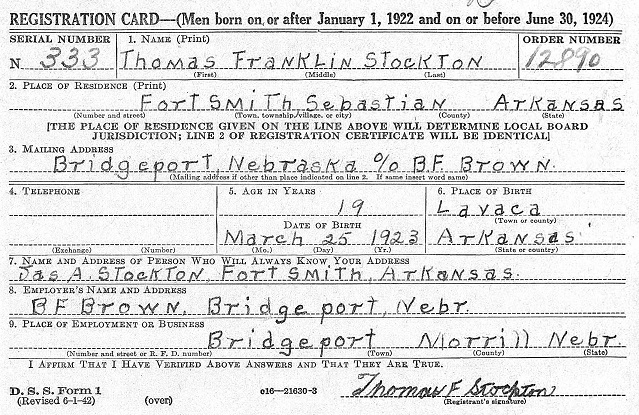 REGISTRATION CARD—(Men born on or after January 1, 1922 and on or before June 30, 1924)
SERIAL NUMBER 1. NAME (Print) ORDER NUMBER
N 333 THOMAS FRANKLIN STOCKTON 12890
(First) (Middle) (Last)
2. PLACE OF RESIDENCE (Print)
FORT SMITH SEBASTIAN ARKANSAS
(Number and street) (Town, township, village, or city) (County) (State)
[THE PLACE OF RESIDENCE GIVEN ON THE LINE ABOVE WILL DETERMINE LOCAL BOARD
JURISDICTION; LINE 2 OF REGISTRATION CERTIFICATE WILL BE IDENTICAL]
3. MAILING ADDRESS
Bridgeport, Nebraska % B.F. BROWN.
(Mailing address if other than place indicated on line 2. If same insert word same)
4. TELEPHONE 5. AGE IN YEARS 6. PLACE OF BIRTH
19 Lavaca
DATE OF BIRTH (Town or county)
March 25 1923 Arkansas
(Exchange) (Number) (Mo.) (Day) (Yr.) (State or country)
7. NAME AND ADDRESS OF PERSON WHO WILL ALWAYS KNOW YOUR ADDRESS
Jas A. STOCKTON, FORT SMITH, ARKANSAS.
8. EMPLOYER'S NAME AND ADDRESS
B F BROWN, Bridge port, Nebr.
9. PLACE OF EMPLOYMENT OR BUSINESS
Bridgeport Morrill Nebr.
(Number and street or R. F. D. number) (Town) (County) (State)
I AFFIRM THAT I HAVE VERIFIED ABOVE ANSWERS AND THAT THEY ARE TRUE.
D. S. S. Form 1 c16—21630-3 Thomas F Stockton
(Revised 6-1-42) (over) (Registrant's signature)